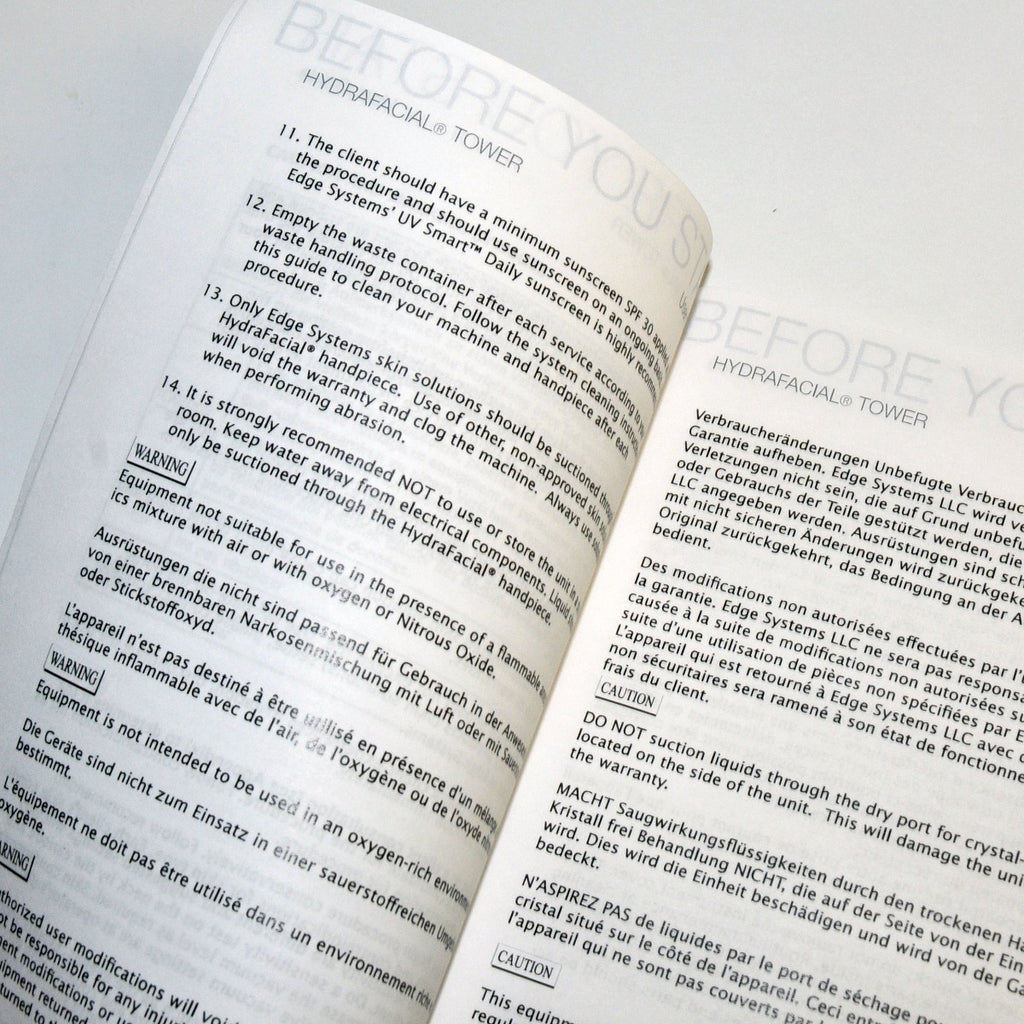 BEFORE YOU ST
HYDRAFACIAL® TOWER
11. The client should have a minimum sunscreen SPF 30 applied
the procedure and should use sunscreen on an ongoing basis
Edge Systems' UV Smart™ Daily sunscreen is highly recom
12. Empty the waste container after each service according to
waste handling protocol. Follow the system cleaning instru
this guide to clean your machine and handpiece after each
procedure.
13. Only Edge Systems skin solutions should be suctioned through
HydraFacial® handpiece. Use of other, non-approved skin
will void the warranty and clog the machine. Always use
when performing abrasion.
14. It is strongly recommended NOT to use or store the unit in
room. Keep water away from electrical components. Liquid
only be suctioned through the HydraFacial® handpiece.
WARNING
Equipment not suitable for use in the presence of a flammable
ics mixture with air or with oxygen or Nitrous Oxide.
Ausrüstungen die nicht sind passend für Gebrauch in der Anwese
von einer brennbaren Narkosenmischung mit Luft oder mit Sauers
oder Stickstoffoxyd.
L'appareil n'est pas destiné à être utilisé en présence d'un mélange
thésique inflammable avec de l'air, de l'oxygène ou de l'oxyde
WARNING
Equipment is not intended to be used in an oxygen-rich environm
Die Geräte sind nicht zum Einsatz in einer sauerstoffreichen Umge
bestimmt.
L'équipement ne doit pas être utilisé dans un environnement riche
oxygène.
ARNING
thorized user modifications will void
ot be responsible for any injur
ment modifications or u
ipment returned
turned to th
BEFORE YO
HYDRAFACIAL® TOWER
Verbraucheränderungen Unbefugte Verbrauc
Garantie aufheben. Edge Systems LLC wird vo
Verletzungen nicht sein, die auf Grund unbefu
oder Gebrauchs der Teile gestützt werden, die
LLC angegeben werden. Ausrüstungen sind sch
mit nicht sicheren Änderungen wird zurückgeke
Original zurückgekehrt, das Bedingung an der A
bedient.
Des modifications non autorisées effectuées par l'
la garantie. Edge Systems LLC ne sera pas responsa
causée à la suite de modifications non autorisées
suite d'une utilisation de pièces non spécifiées par E
L'appareil qui est retourné à Edge Systems LLC avec
non sécuritaires sera ramené à son état de fonctionne
frais du client.
CAUTION
DO NOT suction liquids through the dry port for crystal-
located on the side of the unit. This will damage the uni
the warranty.
MACHT Saugwirkungsflüssigkeiten durch den trockenen Ha
Kristall frei Behandlung NICHT, die auf der Seite von der Ein
wird. Dies wird die Einheit beschädigen und wird von der Ga
bedeckt.
N'ASPIREZ PAS de liquides par le port de séchage po
cristal situé sur le côté de l'appareil. Ceci entr
l'appareil qui ne sont pas couverts par
CAUTION
This equipm
regu